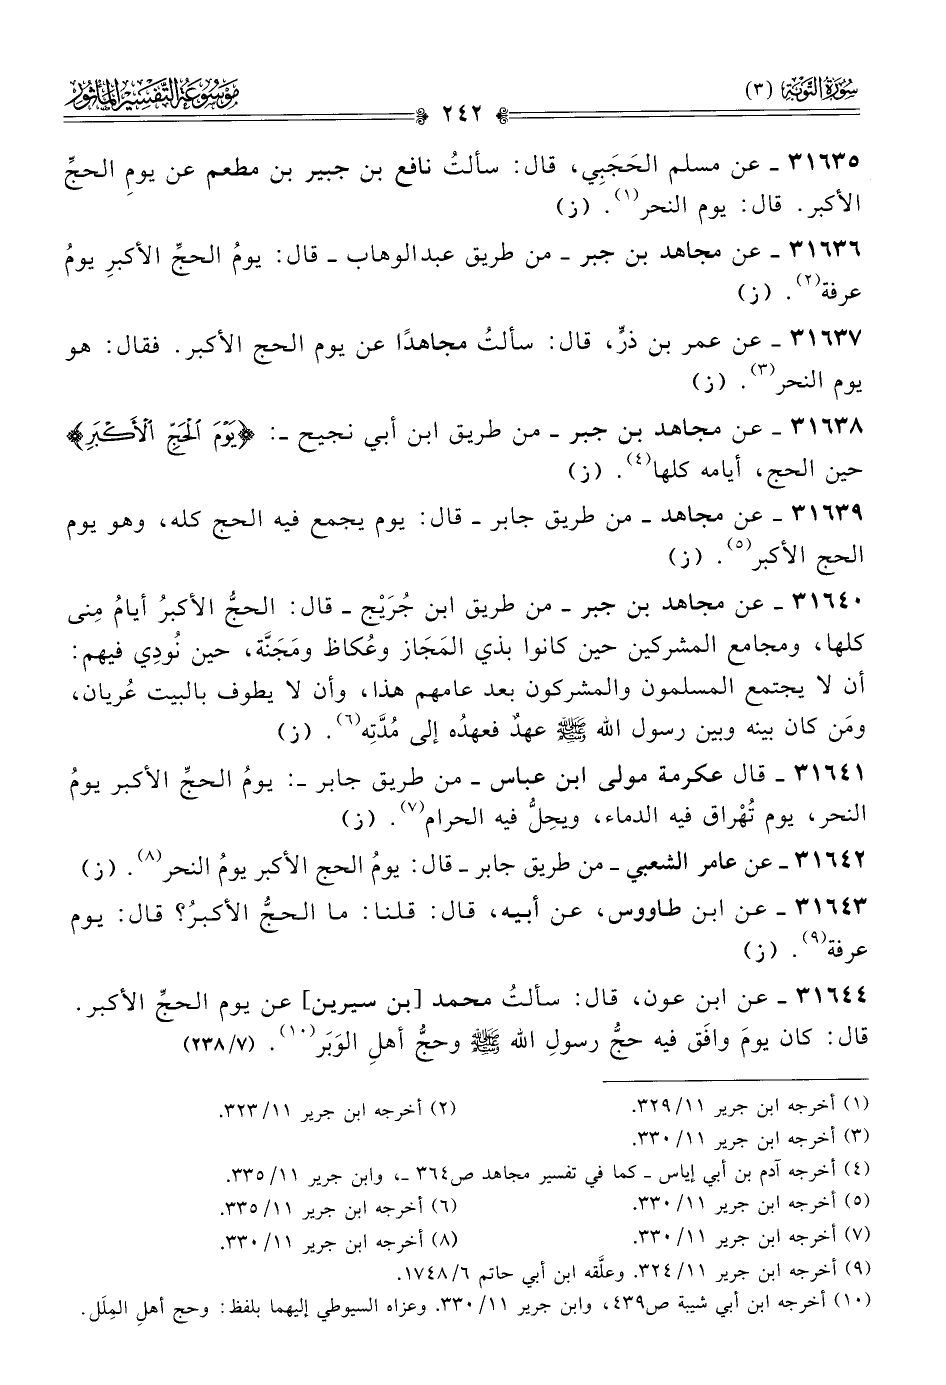 سُورَةُ التَّوْبَةِ (٣)
٢٤٢
مَوْسُوعَةُ التَّفْسِيرِ المَأْثُورِ
٣١٦٣٥ ـ عن مسلم الحَجَبِي، قال: سألتُ نافع بن جبير بن مطعم عن يومِ الحجِّ
الأكبر. قال: يوم النحر(١). (ز)
٣١٦٣٦ ـ عن مجاهد بن جبر ـ من طريق عبدالوهاب ـ قال: يومُ الحجِّ الأكبرِ يومُ
عرفة(٢). (ز)
٣١٦٣٧ ـ عن عمر بن ذرٍّ، قال: سألتُ مجاهدًا عن يوم الحج الأكبر. فقال: هو
يوم النحر(٣). (ز)
٣١٦٣٨ ـ عن مجاهد بن جبر ـ من طريق ابن أبي نجيح ـ: ﴿يَوْمَ ٱلْحَجِّ ٱلْأَكْبَرِ﴾
حين الحج، أيامه كلها(٤). (ز)
٣١٦٣٩ ـ عن مجاهد ـ من طريق جابر ـ قال: يوم يجمع فيه الحج كله، وهو يوم
الحج الأكبر(٥). (ز)
٣١٦٤٠ ـ عن مجاهد بن جبر ـ من طريق ابن جُرَيْج ـ قال: الحجُّ الأكبرُ أيامُ مِنى
كلها، ومجامع المشركين حين كانوا بذي المَجَاز وعُكاظ ومَجَنَّة، حين نُودِي فيهم:
أن لا يجتمع المسلمون والمشركون بعد عامهم هذا، وأن لا يطوف بالبيت عُريان،
ومَن كان بينه وبين رسول الله ﷺ عهدٌ فعهدُه إلى مُدَّتِه(٦). (ز)
٣١٦٤١ ـ قال عكرمة مولى ابن عباس ـ من طريق جابر ـ: يومُ الحجِّ الأكبر يومُ
النحر، يوم تُهْراق فيه الدماء، ويحِلُّ فيه الحرام(٧). (ز)
٣١٦٤٢ ـ عن عامر الشعبي ـ من طريق جابر ـ قال: يومُ الحج الأكبر يومُ النحر(٨). (ز)
٣١٦٤٣ ـ عن ابن طاووس، عن أبيه، قال: قلنا: ما الحجُّ الأكبرُ؟ قال: يوم
عرفة(٩). (ز)
٣١٦٤٤ ـ عن ابن عون، قال: سألتُ محمد [بن سيرين] عن يوم الحجِّ الأكبر.
قال: كان يومَ وافَق فيه حجُّ رسولِ الله ﷺ وحجُّ أهلِ الوَبَر(١٠). (٢٣٨/٧)
(١) أخرجه ابن جرير ١١/ ٣٢٩. (٢) أخرجه ابن جرير ١١/ ٣٢٣.
(٣) أخرجه ابن جرير ١١/ ٣٣٠.
(٤) أخرجه آدم بن أبي إياس ـ كما في تفسير مجاهد ص٣٦٤ ـ، وابن جرير ١١/ ٣٣٥.
(٥) أخرجه ابن جرير ١١/ ٣٣٠. (٦) أخرجه ابن جرير ١١/ ٣٣٥.
(٧) أخرجه ابن جرير ١١/ ٣٣٠. (٨) أخرجه ابن جرير ١١/ ٣٣٠.
(٩) أخرجه ابن جرير ١١/ ٣٢٤. وعلَّقه ابن أبي حاتم ٦/ ١٧٤٨.
(١٠) أخرجه ابن أبي شيبة ص٤٣٩، وابن جرير ١١/ ٣٣٠. وعزاه السيوطي إليهما بلفظ: وحج أهلِ المِلَل.